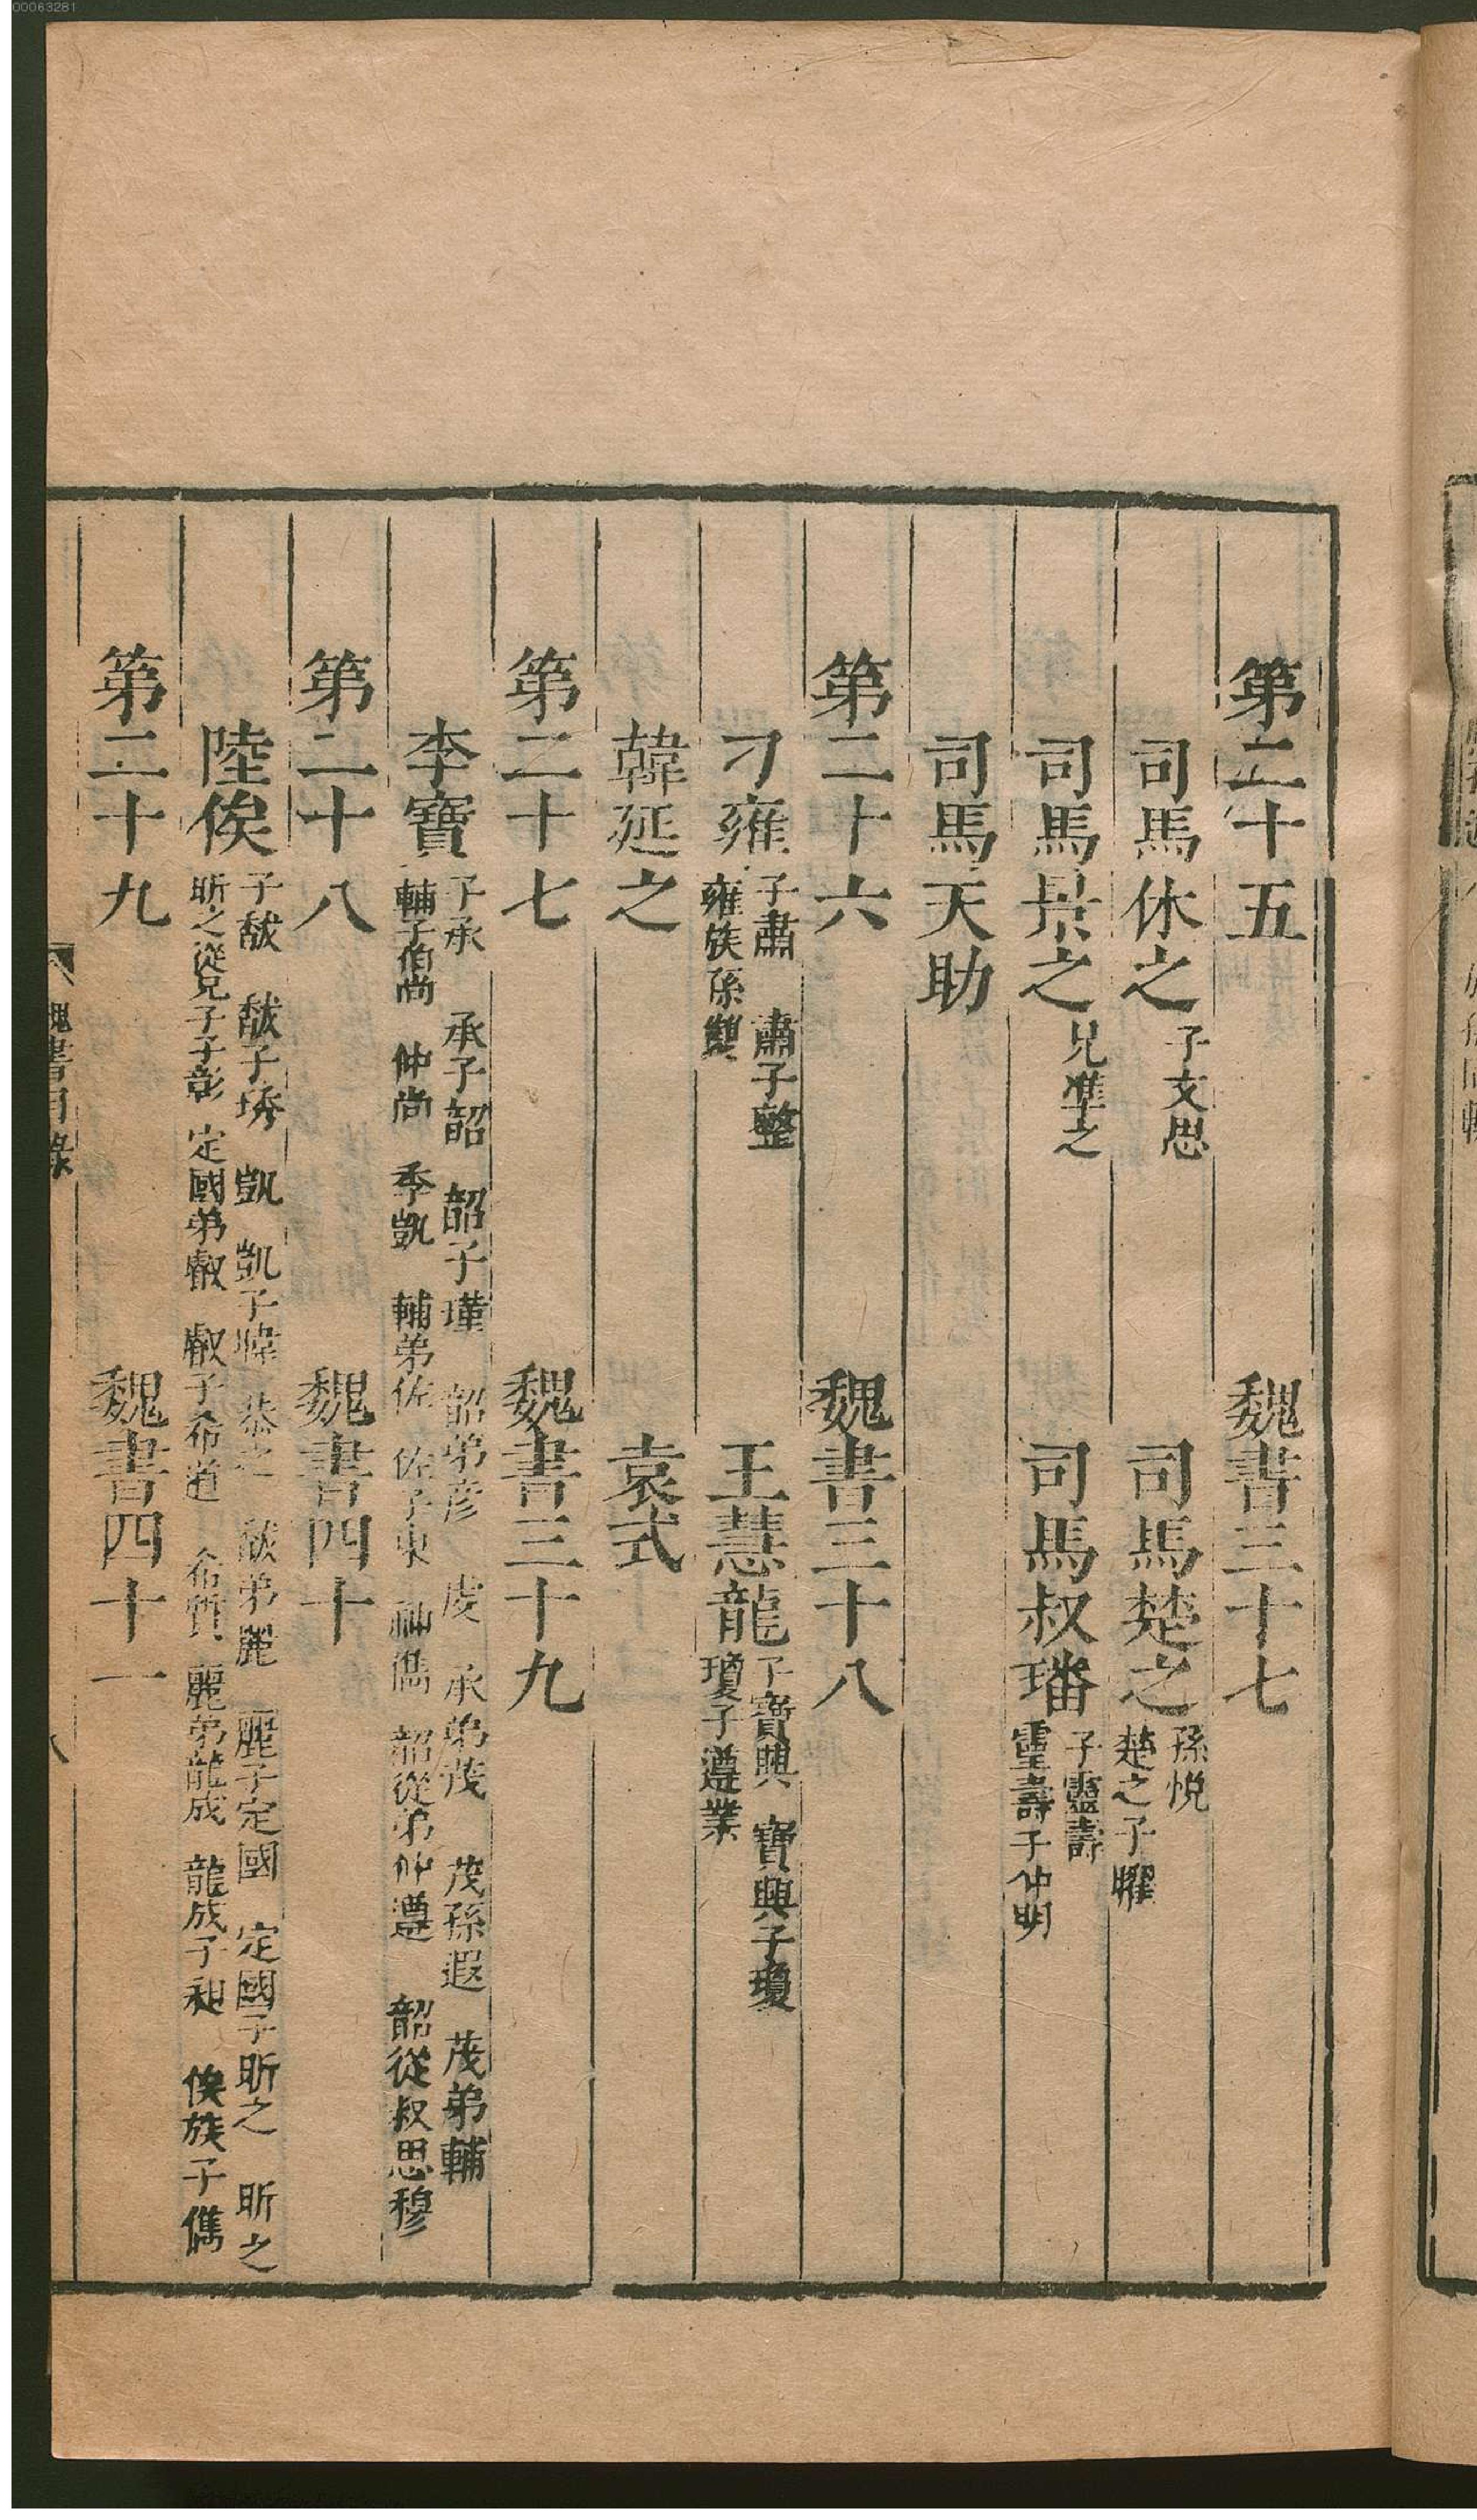 00063281
第二十五 魏書三十七
司馬休之 子文思 司馬楚之 孫悦 楚之子躍
司馬景之 兄準之 司馬叔璠 子靈壽 靈壽子仲明
司馬天助
第二十六 魏書三十八
刁雍 子肅 肅子整 雍族孫雙 王慧龍 子寶興 寶興子瓊 瓊子遵業
韓延之 袁式
第二十七 魏書三十九
李寶 子承 承子韶 韶子瑾 韶弟彦 虔 承弟茂 茂孫遐 茂弟輔
輔子伯尚 仲尚 季凱 輔弟佐 佐子東 神儁 韶從弟仲遵 韶從叔思穆
第二十八 魏書四十
陸俟 子馛 馛子琇 凱 凱子暐 恭之 馛弟麗 麗子定國 定國子昕之 昕之
昕之從兄子子彰 定國弟叡 叡子希道 希質 麗弟龍成 龍成子昶 俟族子儁
第二十九 魏書四十一
魏書目錄 八